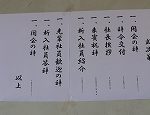 一、開会の辞
一、辞令交付
一、社長挨拶
一、来賓祝辞
一、新入社員紹介
一、先輩社員歓迎の辞
一、新入社員答辞
一、閉会の辞
以上